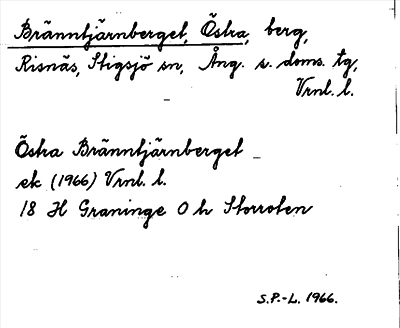 Bränntjärnberget, Östra, berg,
Risnäs, Stigsjö sn, Ång. s. doms. tg,
Vrnl. l.
Östra Bränntjärnberget
ek (1966) Vrnl. l.
18 H Graninge O h Storroten
S.P.-L. 1966.